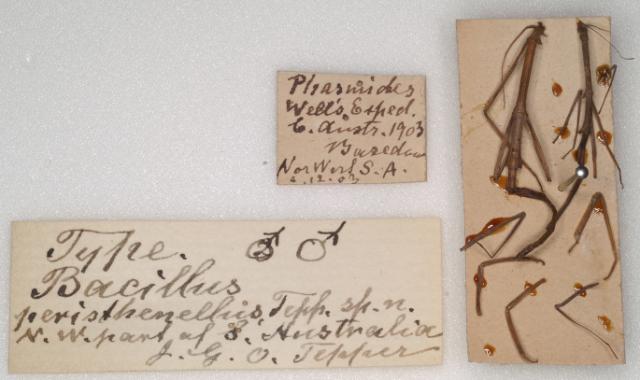 Phasmides
Well's Exped.
C. Austr. 1903
Basedow
Nor West S. A.
2.12.03
Type. ♂ ♂
Bacillus
peristhenellus Tepp. sp. n.
N. W. part of S. Australia
J. G. O. Tepper